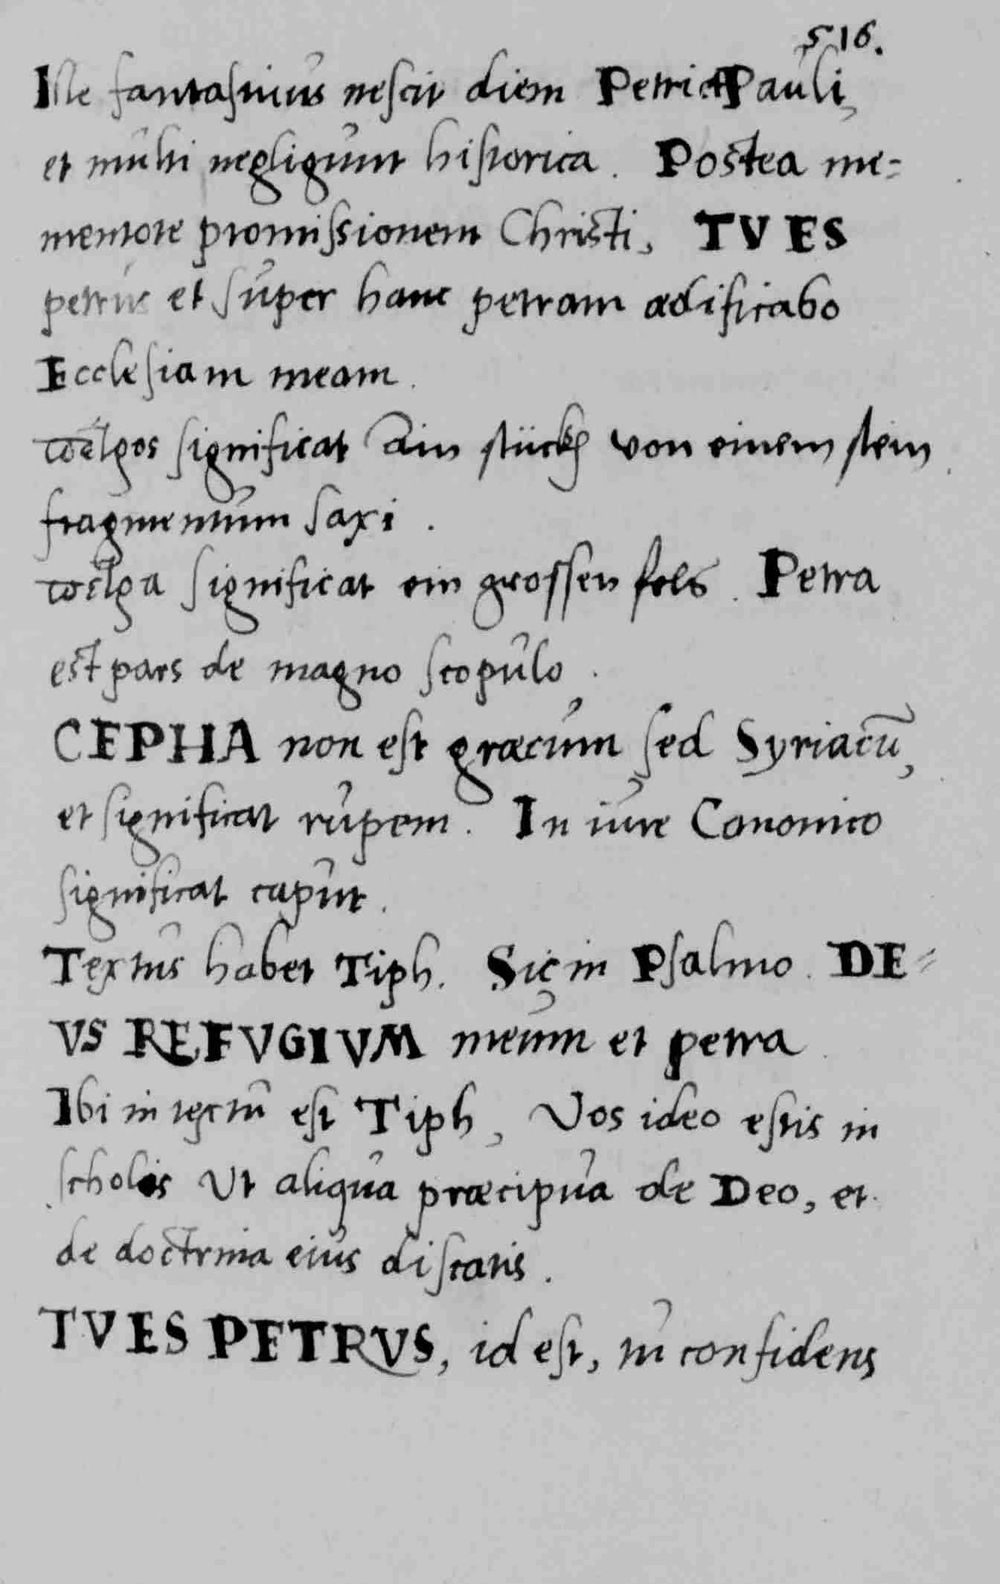 516.
Iste fantasmus nescit diem Petri et Pauli,
et multi negligunt historica. Postea me=
mentote promissionem Christi, TV ES
petrus et super hanc petram ædificabo
Ecclesiam meam.
πέτρος significat Ain stückh von einem stein
fragmentum saxi.
πέτρα significat ein grossen fels. Petra
est pars de magno scopulo.
CEPHA non est græcum sed Syriacū,
et significat rupem. In iure Canonico
significat caput.
Textus habet Tiph. Sic in Psalmo. DE=
VS REFVGIVM meum et petra
Ibi in textū est Tiph, Vos ideo estis in
scholis Ut aliqua præcipua de Deo, et
de doctrina eius discatis.
TV ES PETRVS, id est, tu confidens